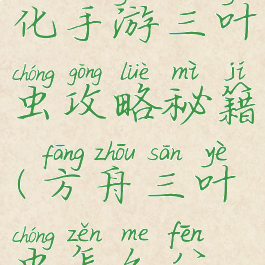 化手游三叶
chóng gōng lüè mì jí
虫攻略秘籍
fāng zhōu sān yè
(方舟三叶
chóng zěn me fēn
虫怎么分